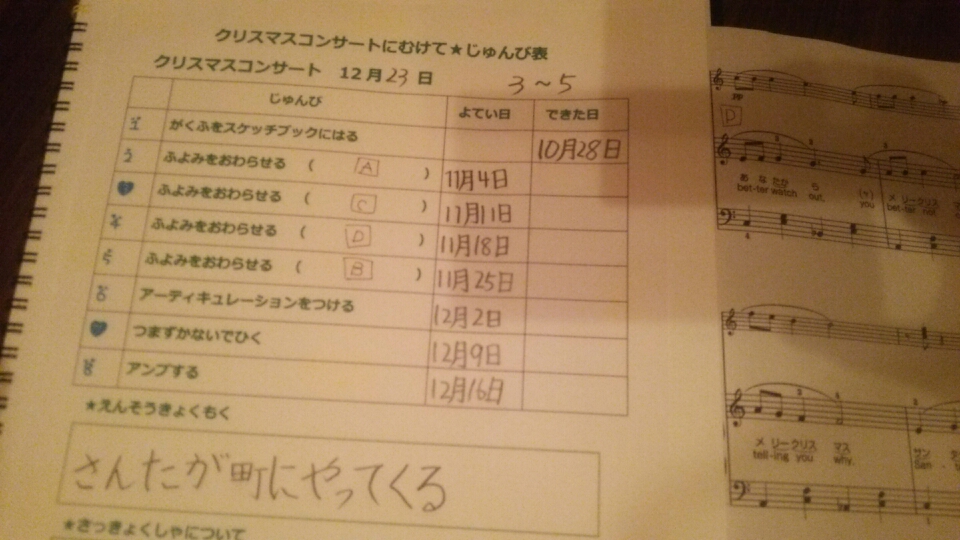 クリスマスコンサートにむけて★じゅんび表
クリスマスコンサート 12月23日 3～5
じゅんび よてい日 できた日
1 がくふをスケッチブックにはる 10月28日
2 ふよみをおわらせる ( A ) 11月4日
ふよみをおわらせる ( C ) 11月11日
4 ふよみをおわらせる ( D ) 11月18日
5 ふよみをおわらせる ( B ) 11月25日
6 アーティキュレーションをつける 12月2日
つまずかないでひく 12月9日
8 アンプする 12月16日
★えんそうきょくもく
さんたが町にやってくる
★さっきょくしゃについて
D
あ な たか ら (ッ) メ リークリス マ
bet-ter watch out, you bet-ter not
メ リークリス マス サン タ
tell-ing you why. San - t